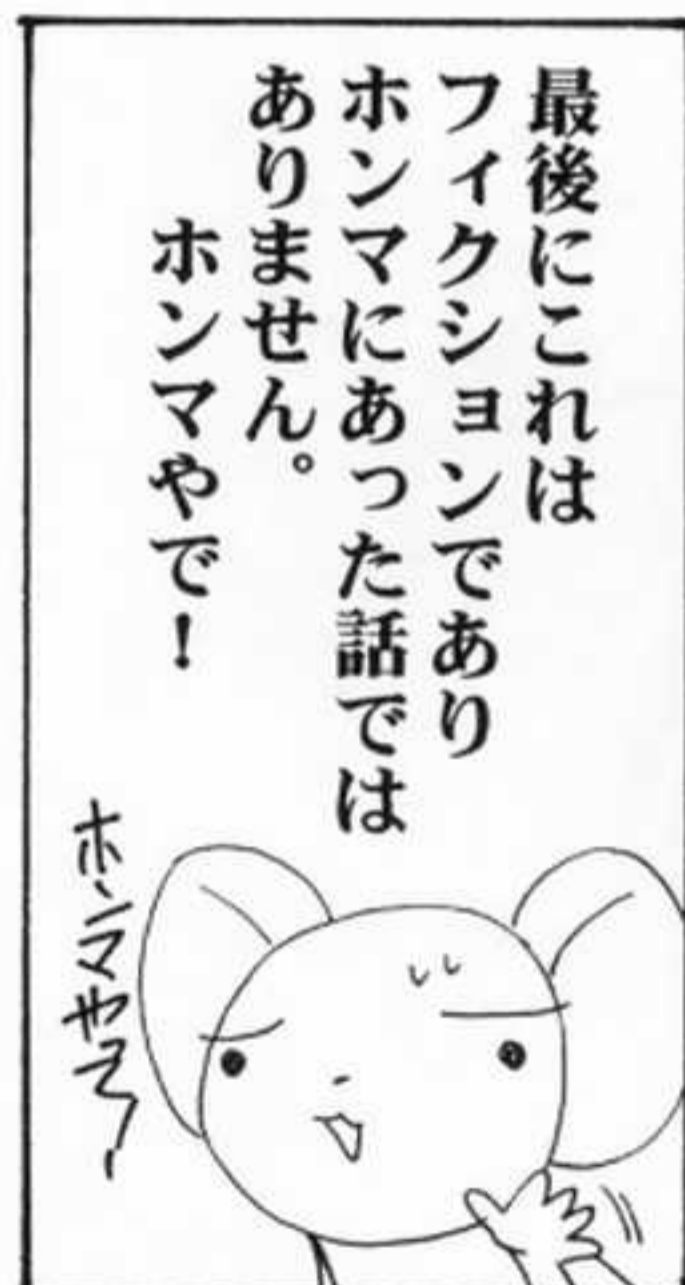 最後にこれは
フィクションであり
ホンマにあった話では
ありません。
ホンマやで！
ホンマやでー